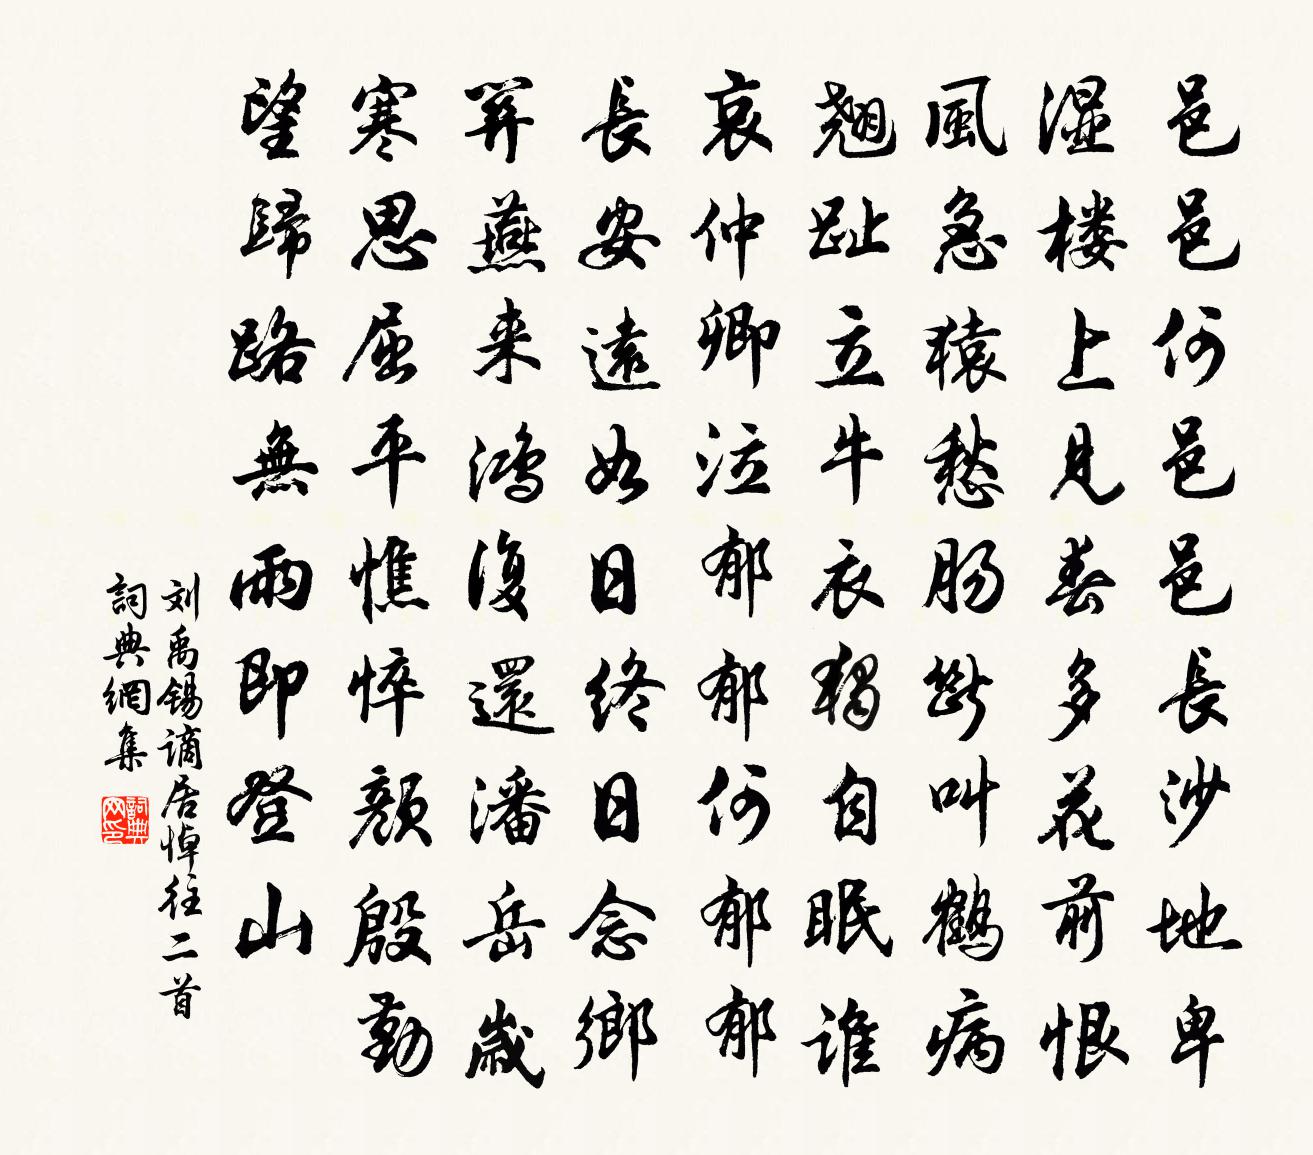 邑邑何邑邑長沙地卑
濕楼上見春多花前恨
風急猿愁肠斷叫鶴病
翹趾立牛衣獨自眠誰
哀仲卿泣郁郁何郁郁
長安遠如日終日念鄉
關燕来鴻復還潘岳歲
寒思屈平憔悴顏殷勤
望歸路無雨即登山
刘禹锡谪居悼往二首
詞典網集
詞典网印